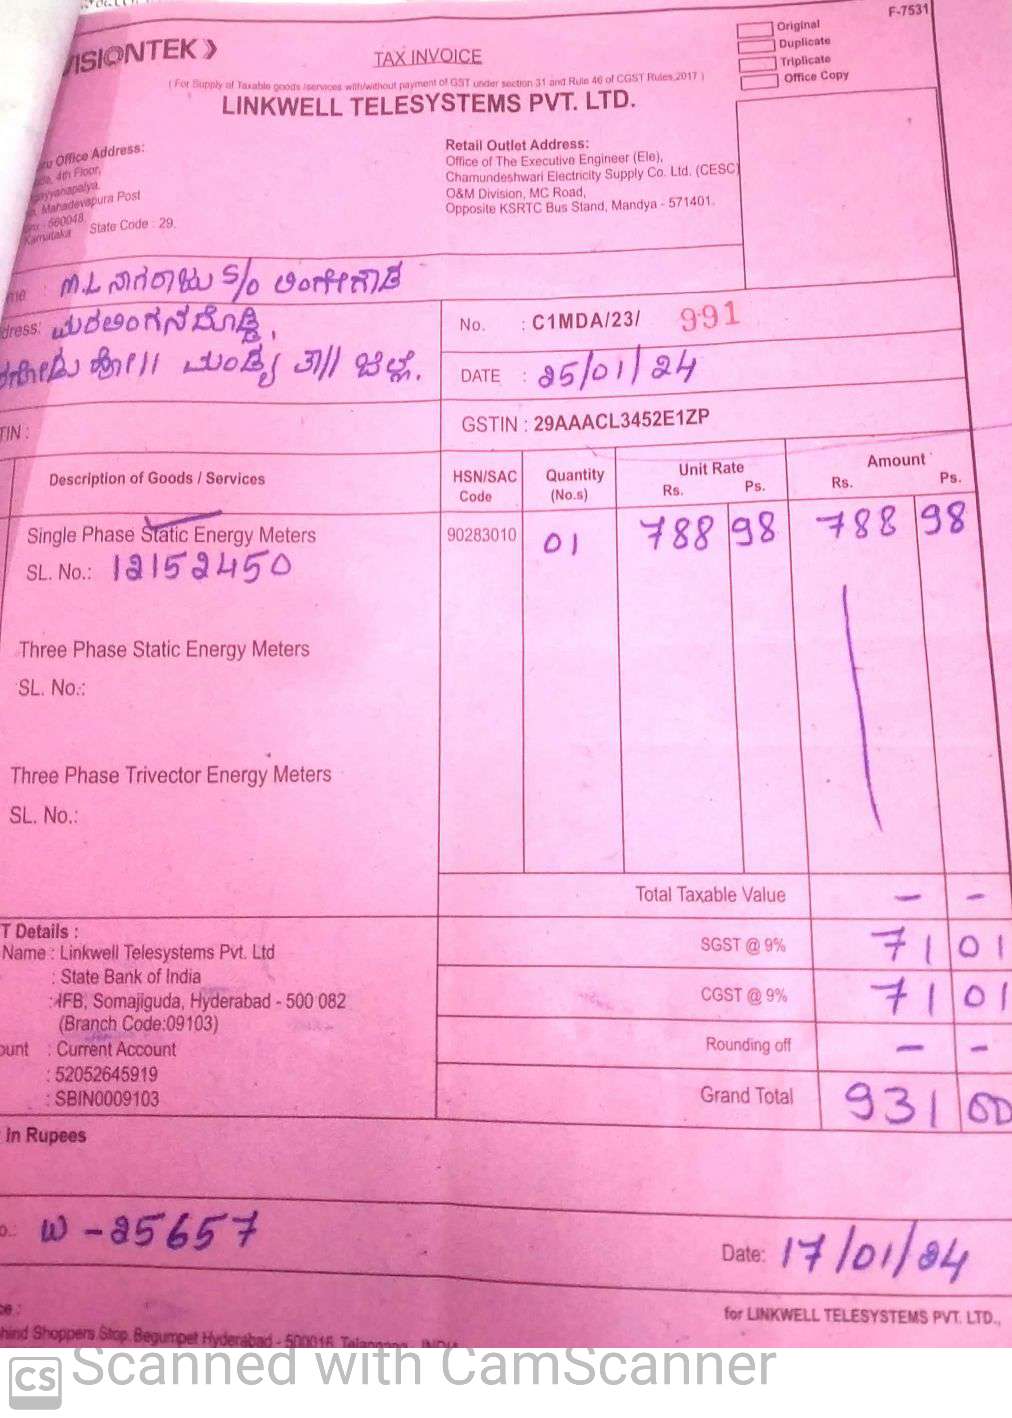 F-7531
VISIONTEK
TAX INVOICE
Original
Duplicate
Triplicate
Office Copy
( For Supply of Taxable goods /services with/without payment of GST under section 31 and Rule 46 of CGST Rules,2017 )
LINKWELL TELESYSTEMS PVT. LTD.
Office Address:
4th Floor,
Mahadevapura Post
560048.
Karnataka State Code : 29.
Retail Outlet Address:
Office of The Executive Engineer (Ele),
Chamundeshwari Electricity Supply Co. Ltd. (CESC)
O&M Division, MC Road,
Opposite KSRTC Bus Stand, Mandya - 571401.
M.L ನಾಗರಾಜು S/o ಲಿಂಗೇಗೌಡ
ಮರಲಿಂಗನದೊಡ್ಡಿ,
ಹೋ// ಮಂಡ್ಯ ತಾ// ಜಿಲ್ಲೆ.
No. : C1MDA/23/ 991
DATE : 25/01/24
TIN :
GSTIN : 29AAACL3452E1ZP
Description of Goods / Services HSN/SAC Code Quantity (No.s) Unit Rate Rs. Ps. Amount Rs. Ps.
Single Phase Static Energy Meters 90283010 01 788 98 788 98
SL. No.: 12152450
Three Phase Static Energy Meters
SL. No.:
Three Phase Trivector Energy Meters
SL. No.:
Total Taxable Value - -
SGST @ 9% 71 01
CGST @ 9% 71 01
Rounding off - -
Grand Total 931 00
T Details :
Name : Linkwell Telesystems Pvt. Ltd
: State Bank of India
: IFB, Somajiguda, Hyderabad - 500 082
(Branch Code:09103)
ount : Current Account
: 52052645919
: SBIN0009103
In Rupees
o.: W - 25657
Date: 17/01/24
for LINKWELL TELESYSTEMS PVT. LTD.,
hind Shoppers Stop, Begumpet Hyderabad - 500016, Telangana - INDIA
CS Scanned with CamScanner